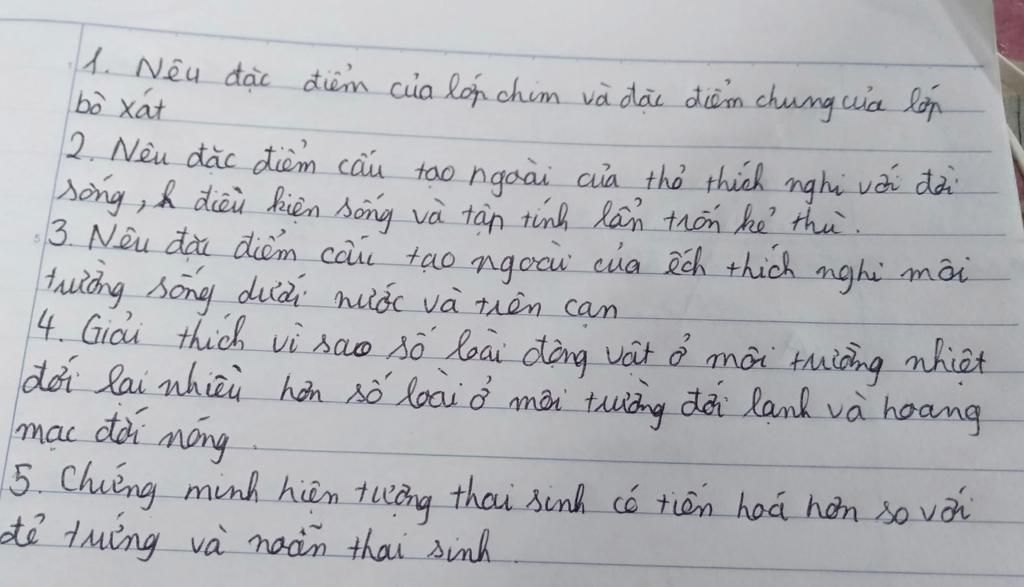 1. Nêu đặc điểm của lớp chim và đặc điểm chung của lớp
bò xát
2. Nêu đặc điểm cấu tạo ngoài của thỏ thích nghi với đời
sống, điều kiện sống và tập tính lẩn trốn kẻ thù.
3. Nêu đặc điểm cấu tạo ngoài của ếch thích nghi môi
trường sống dưới nước và trên cạn
4. Giải thích vì sao số loài động vật ở môi trường nhiệt
đới lại nhiều hơn số loài ở môi trường đới lạnh và hoang
mạc đới nóng.
5. Chứng minh hiện tượng thai sinh có tiến hoá hơn so với
đẻ trứng và noãn thai sinh.